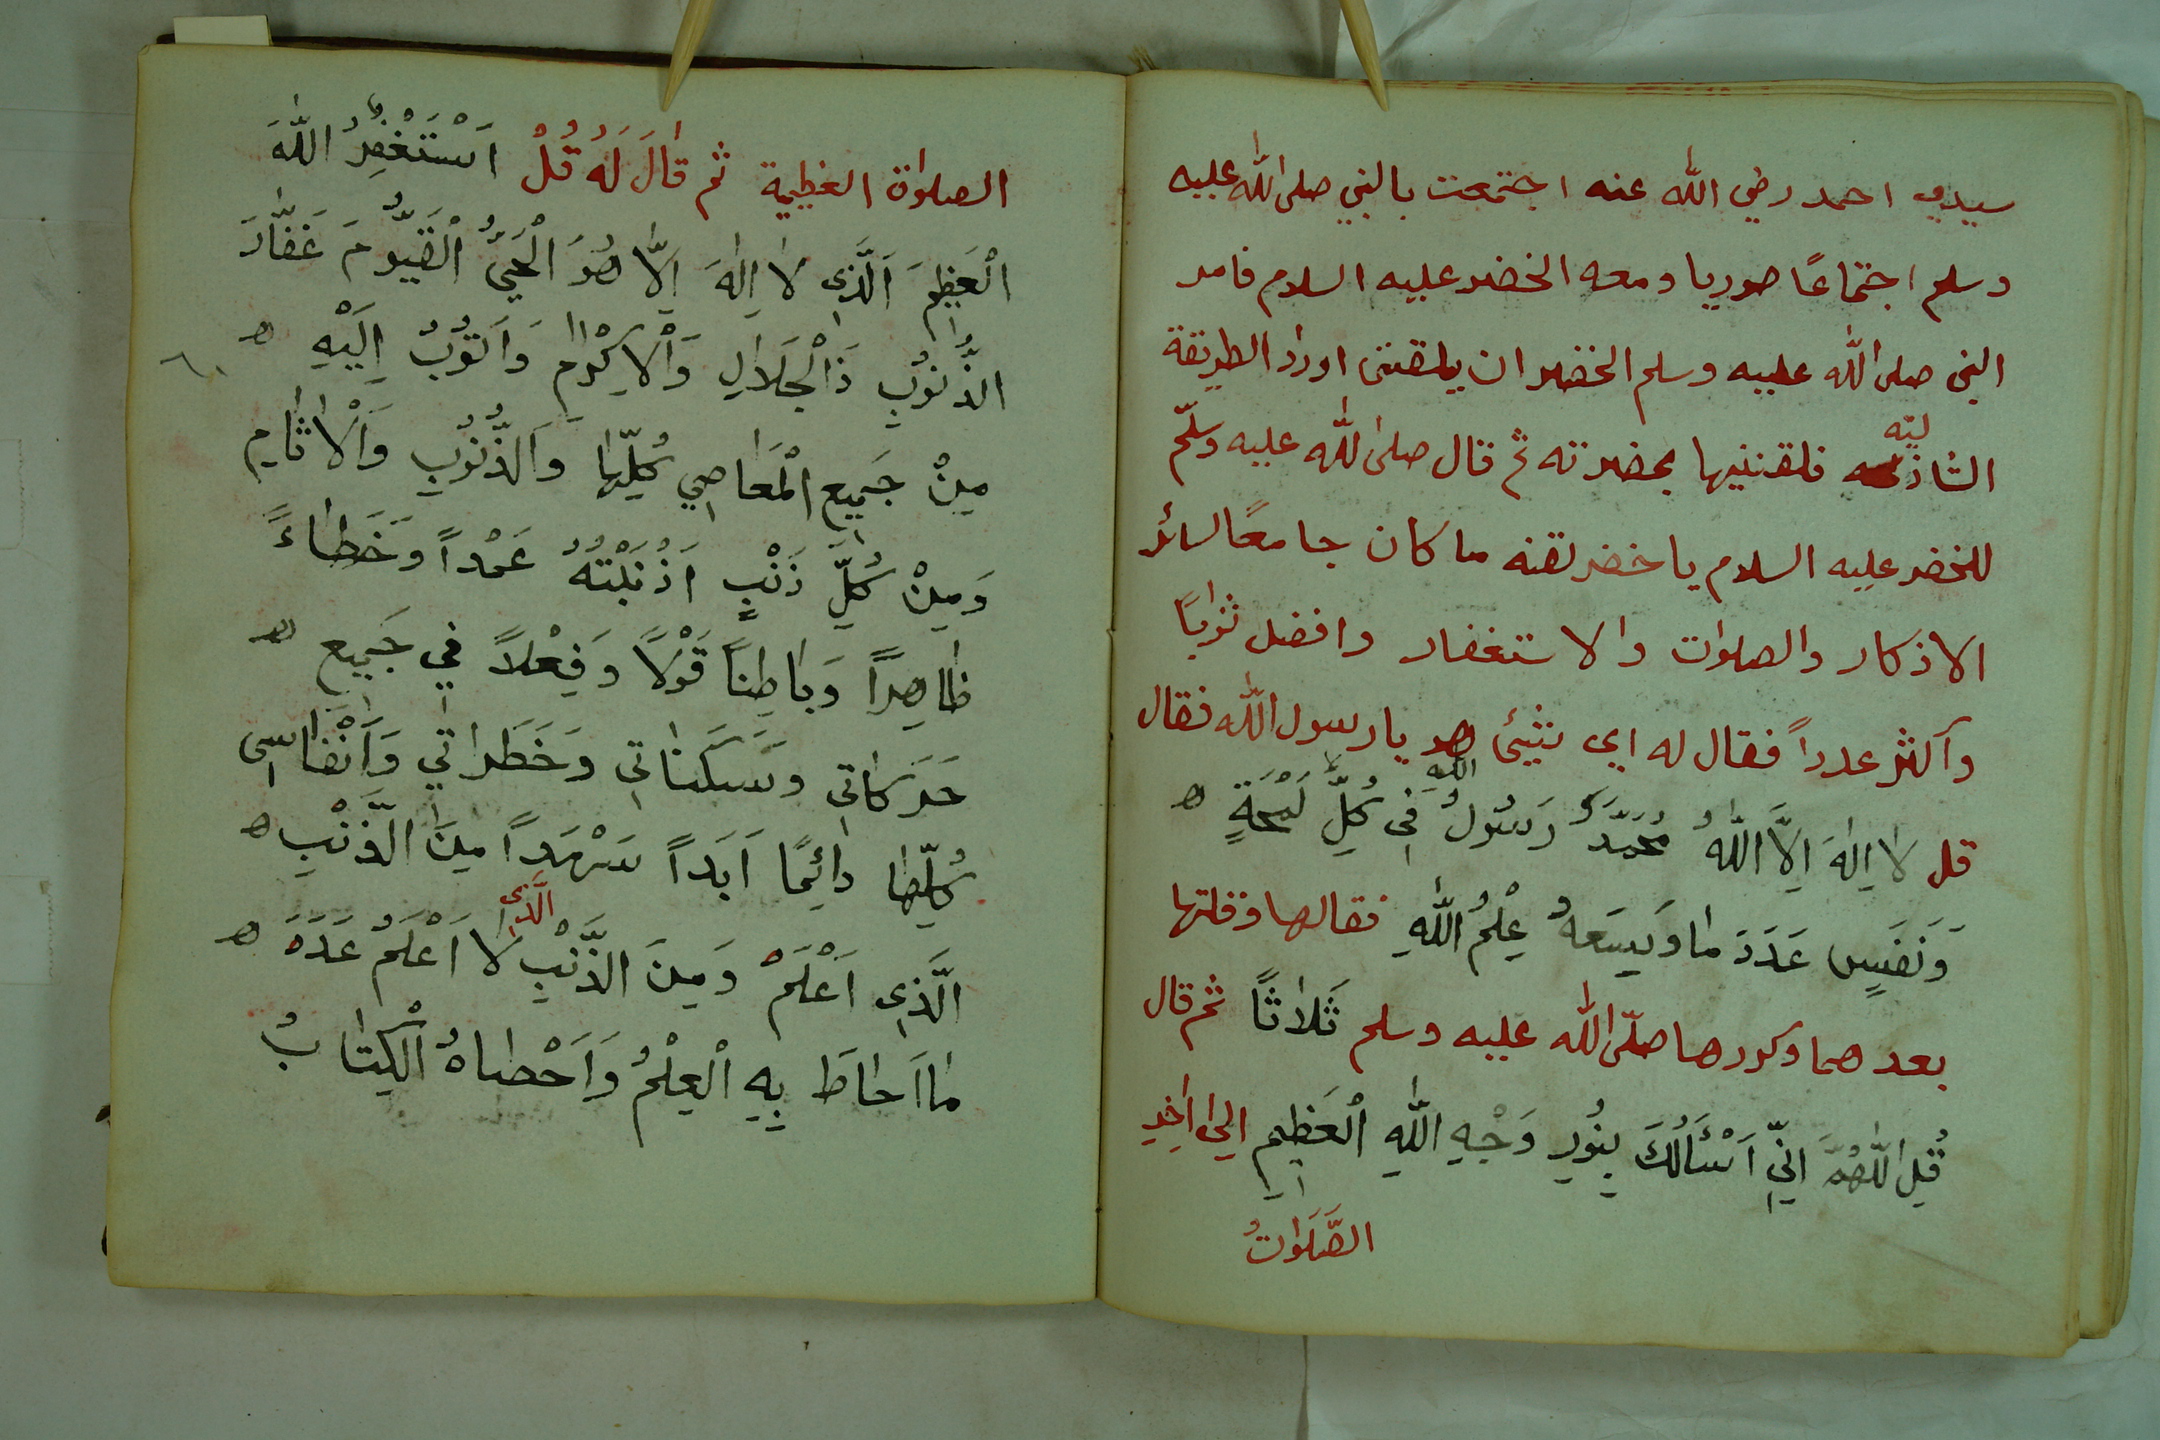 سيدي احمد رضي الله عنه اجتمعت بالنبي صلى الله عليه
وسلم اجتماعًا صوريا ومعه الخضر عليه السلام فامر
النبي صلى الله عليه وسلم الخضر ان يلقنني اوراد الطريقة
الشاذليّه فلقننيها بحضرته ثم قال صلى الله عليه وسلّم
للخضر عليه السلام يا خضر لقنه ما كان جامعًا لسائر
الاذكار والصلوات والاستغفار وافضل ثوابًا
وآكثر عدداً فقال له اي شيئ هو يا رسول الله فقال
قل لا اِلٰهَ اِلَّا اللّٰهُ مُحَمَّدٌ رَسُولُ اللّٰهِ فِى كُلِّ لَمْحَةٍ ه
وَنَفَسٍ عَدَدَ مَا وَسِعَهُ عِلْمُ اللّٰهِ فقالها وقلتها
بعدهما وكررها صلّى الله عليه وسلم ثَلاثًا ثم قال
قُلِ اللّٰهُمَّ اِنِّي اَسْئَلُكَ بِنُورِ وَجْهِ اللّٰهِ الْعَظِيمِ الى اٰخِرِ
الصَّلَوٰاتُ
الصلواة العظيمية ثم قَالَ لَهُ قُلْ اَسْتَغْفِرُ اللّٰهَ
الْعَظِيمَ اَلَّذِي لَا اِلٰهَ اِلَّا هُوَ الْحَيُّ الْقَيُّومَ غَفَّارَ
الذُّنُوُبِ ذَا الْجَلَالِ وَالْاِكْرٰامِ وَاَتُوُبُ اِلَيْهِ ه ٦٠
مِنْ جَمِيعِ الْمَعَاصِي كُلِّهٰا وَالذُّنُوُبِ وَالْاٰثٰامِ
وَمِنْ كُلِّ ذَنْبٍ اَذْنَبْتُهُ عَمْداً وَخَطٰاءً
ظٰاهِراً وَبٰاطِناً قَوْلًا وَفِعْلاً فِي جَمِيعِ ه
حَرَكٰاتِى وَسَكَنٰاتِى وَخَطَرٰاتِي وَاَنْفٰاسِى
كُلِّهٰا دٰائِمًا اَبَداً سَرْمَداً مِنَ الذَّنْبِ ه
الَّذِى اَعْلَمْ وَمِنَ الذَّنْبِ الَّذِى لَا اَعْلَمُ عَدَدَ ه
مٰا اَحٰاطَ بِهِ الْعِلْمُ وَاَحْصٰاهُ الْكِتٰابُ